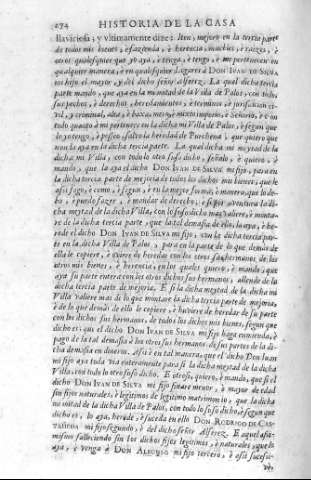 274 HISTORIA DE LA CASA
llaviciosa; y vltimamente dize: Iten, mejoro en la tercia parte
de todos mis bienes, è fazienda, è herencia, muebles, è raizes, è
otros qualesquier que yo aya, è tenga, è tengo, è me pertenecen en
qualquier manera, è en qualesquier Lugares à DON IVAN DE SILVA
mi hijo el mayor, y del dicho señor Alferez. La qual dicha tercia
parte mando, que aya en la mi mitad de la Villa de Palos, con todos
sus pechos, è derechos, heredamientos, è terminos, è jurisdicion ci-
vil, y criminal, alta, è baxa, mero è mixto imperio, è Señorio, è con
todo quanto à mi pertenece en la dicha mi Villa de Palos, è segun que
yo lo tengo, è posseo assi la heredad de Purchena, que quiero que
non la aya en la dicha tercia parte. La qual dicha mi meytad de la
dicha mi Villa, con todo lo otro suso dicho, señalo, è quiero, è
mando, que la aya el dicho DON IVAN DE SILVA mi fijo, para en
la dicha tercia parte de mejoria de todos los dichos mis bienes; que le
assi fago, è como, è segun, è en la mejor forma, è manera, que lo de-
bo, è puedo fazer, è mandar de derecho; è si por aventura la di-
cha meytad de la dicha Villa, con lo suso dicho mas valiere, è monta-
re de la dicha tercia parte, que la tal demasia de ello, la aya, è he-
rede el dicho DON IVAN DE SILVA mi fijo, con la dicha tercia par-
te en la dicha Villa de Palos, para en la parte de lo que demàs de
ella le copiere, è oviere de heredar con los otros sus hermanos, de los
otros mis bienes, è herencia, en los quales quiero, è mando, que
aya su parte entera con los otros dichos sus hermanos, allende de la
dicha tercia parte de mejoria. E si la dicha meytad de la dicha mi
Villa valiere mas de lo que montare la dicha tercia parte de mejoria,
è de lo que demàs de ello le copiere, è huviere de heredar de su parte
con los dichos sus hermanos, de todos los dichos mis bienes, segun que
dicho es: que el dicho DON IVAN DE SILVA mi fijo haga enmienda, è
pago de la tal demasia à los otros sus hermanos de sus partes de la di-
cha demasia en dineros. Assi è en tal manera, que el dicho Don Iuan
mi fijo aya toda via enteramente para si la dicha meytad de la dicha
Villa, con todo lo otro suso dicho. E otrosi, quiero, è mando, que si el
dicho DON IVAN DE SILVA mi fijo finare menor, è mayor de edad
sin fijos naturales, è legitimos de legitimo matrimonio, que la dicha
mi mitad de la dicha Villa de Palos, con todo lo suso dicho, è segun que
dicho es, lo aya, herede, è suceda en ello DON RODRIGO DE CAS-
TAÑEDA mi fijo segundo, è del dicho señor Alferez. E aquel assi-
mismo falleciendo sin los dichos fijos legitimos, è naturales, que lo
aya, è venga à DON ALFONSO mi fijo tercero, è assi sucessi-